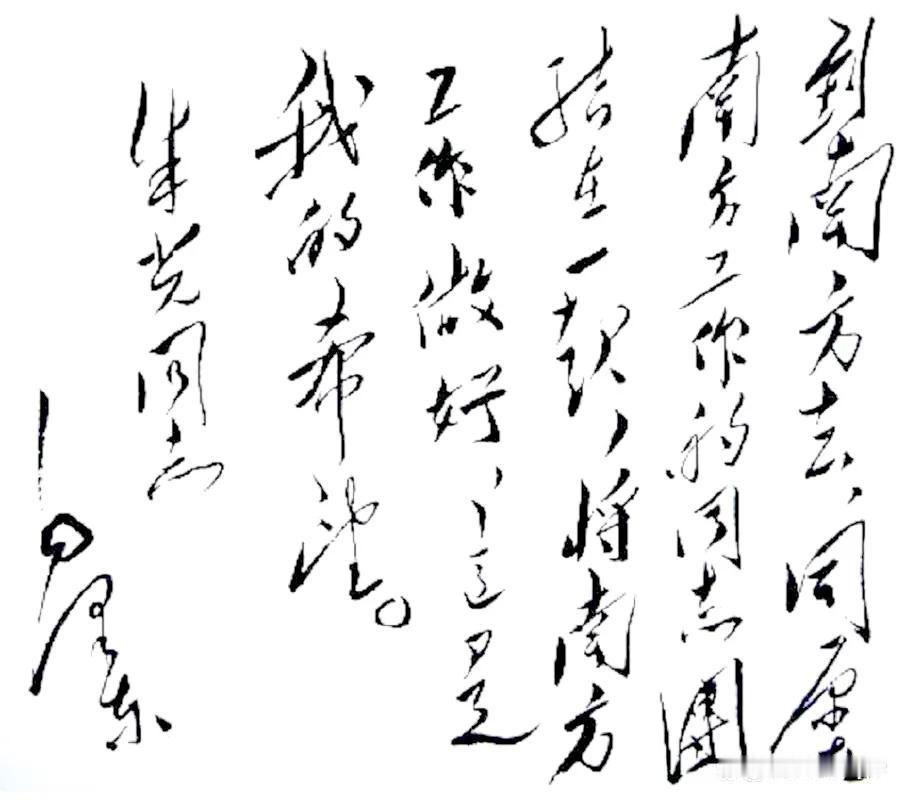 到南方去，同原在
南方工作的同志團
结在一起，将南方
工作做好，这是
我的希望。
朱光同志
毛泽东